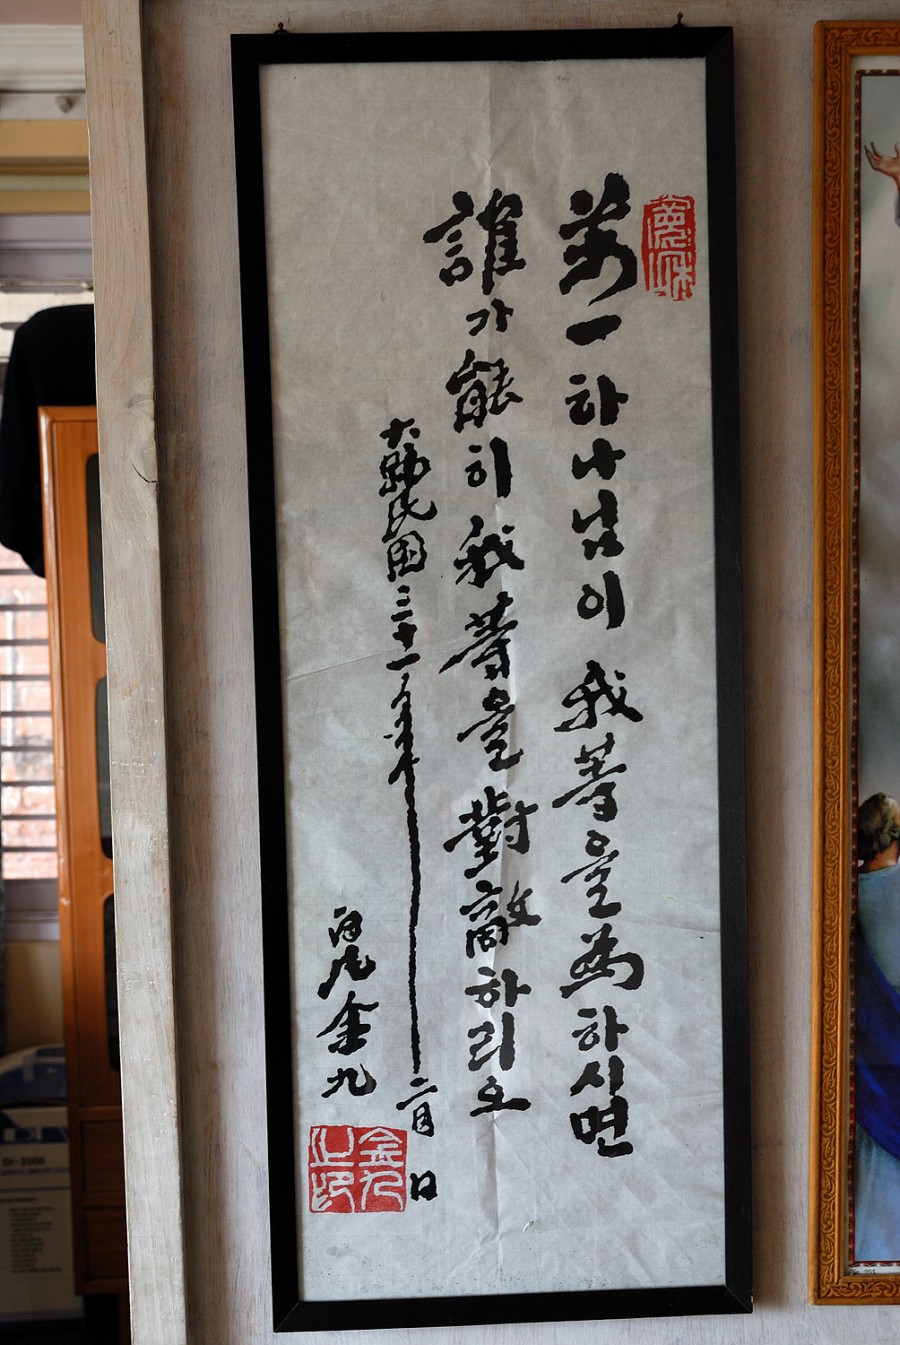 萬一 하나님이 我等을 爲하시면
誰가 能히 我等을 對敵하리오
大韓民國三十一年 二月 日
白凡 金九
金九之印